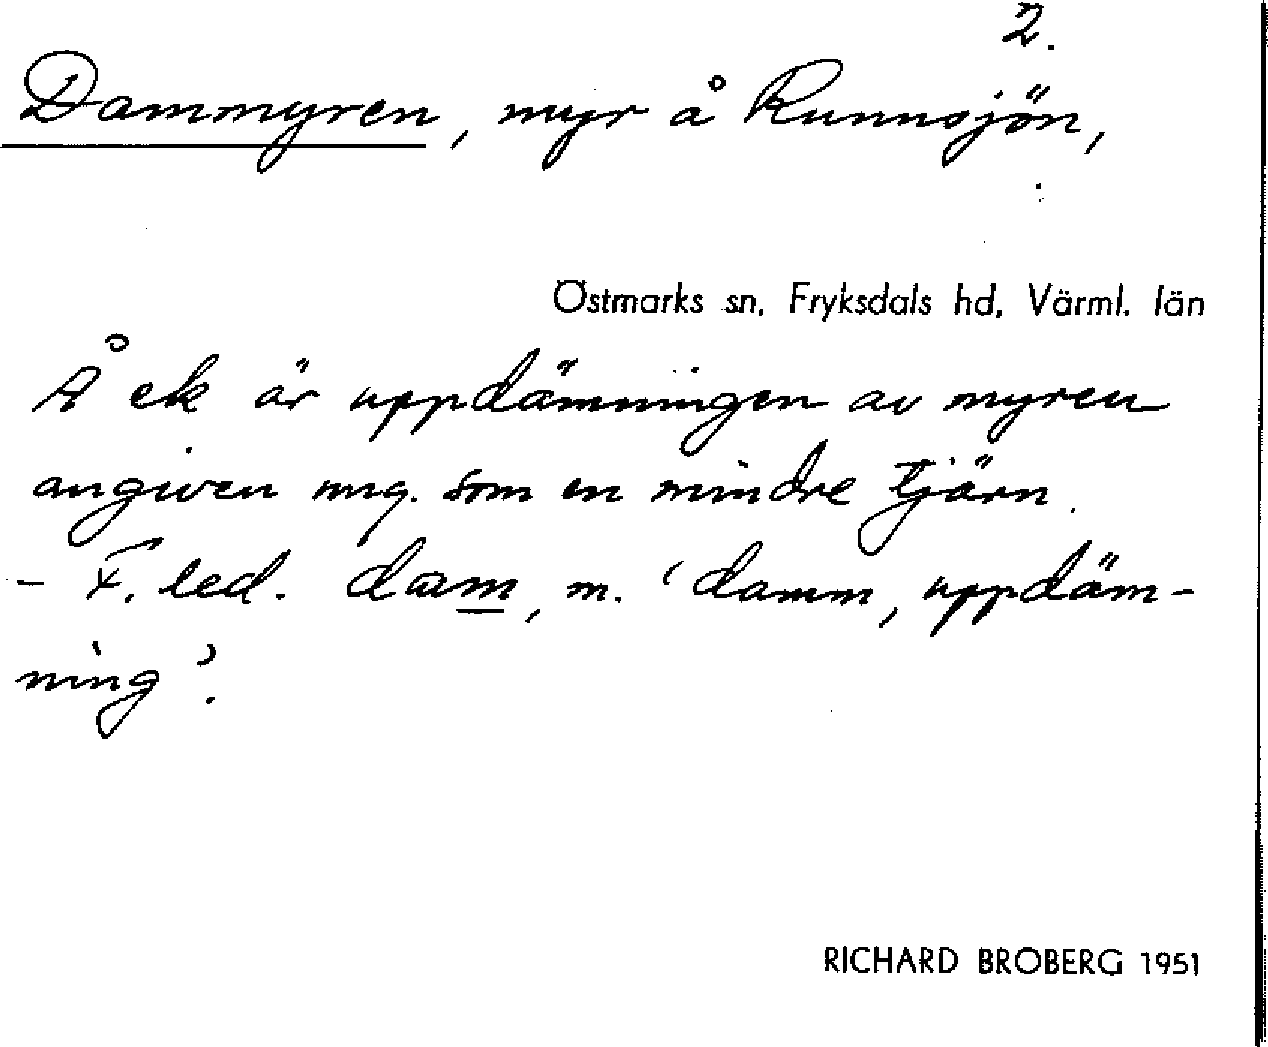 2.
Dammyren, myr å Runnsjön,
Östmarks sn, Fryksdals hd, Värml. län
Å ek är uppdämningen av myren
angiven ung. som en mindre tjärn.
- F. led. dam, m. ‘damm, uppdäm-
ning’.
RICHARD BROBERG 1951